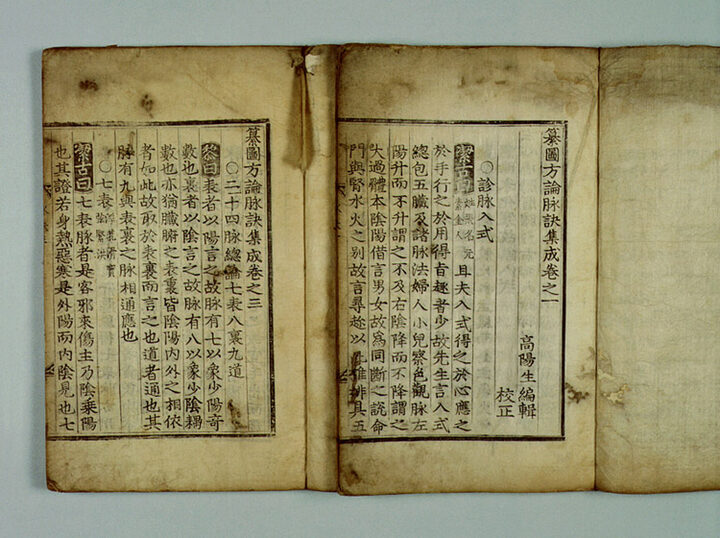 纂圖方論脉訣集成卷之一
高陽生 編輯
校正
〇診脉入式
潔古曰姓張名元素金人 且夫入式得之於心應之
於手行之於用得旨趣者少故先生言入式
總包五臟及諸脉法婦人小兒察色觀脉左
陽升而不升謂之不及右陰降而不降謂之
大過體本陰陽借言男女故爲同斷之說命
門與腎水火之別故言尋趁以推排具五
纂圖方論脉訣集成卷之三
〇二十四脉總論七表八裏九道
黎曰表者以陽言之故脉有七以象少陽奇
數也裏者以陰言之故脉有八以象少陰耦
數也亦猶臟腑之表裏皆陰陽內外之相依
者如此故取於表裏而言之也道者通也其
脉有九與表裏之脉相通應也
〇七表浮芤滑實弦緊洪
潔古曰七表脉者是客邪來傷主乃陰乘陽
也其證若身熱惡寒是外陽而內陰見也七